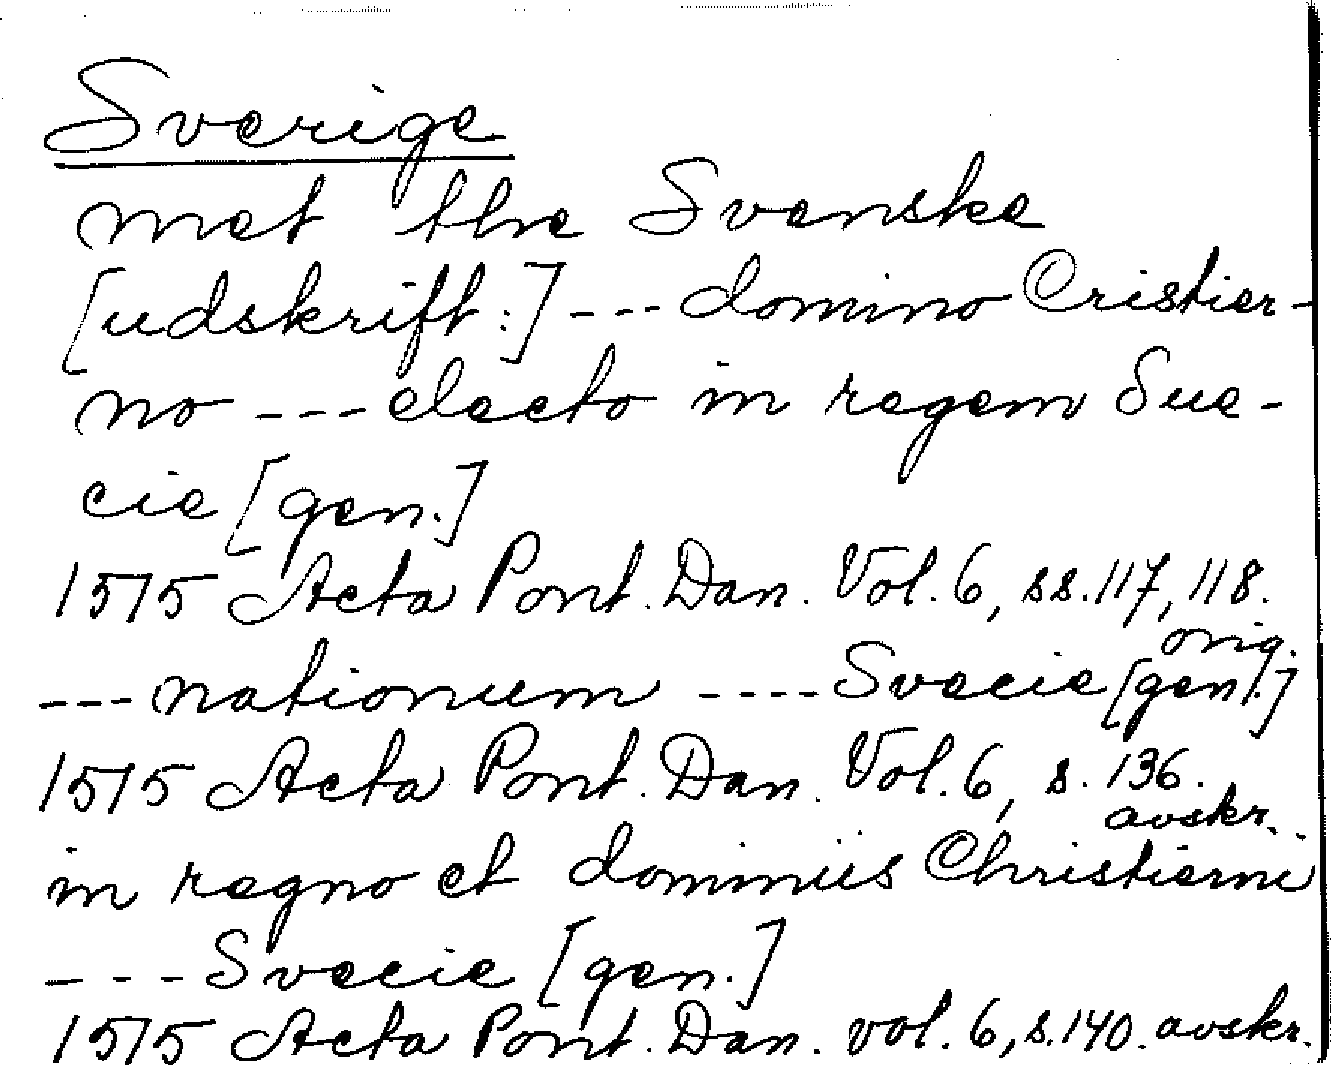 Sverige
met the Svenske
[udskrift:] --- domino Cristier-
no --- electo in regem Sue-
cie [gen.]
1515 Acta Pont. Dan. Vol. 6, ss. 117, 118.
orig.
--- nationum ---- Svecie [gen.]
1515 Acta Pont. Dan. Vol. 6, s. 136.
avskr.
in regno et dominiis Christierni
--- Svecie [gen.]
1515 Acta Pont. Dan. vol. 6, s. 140. avskr.